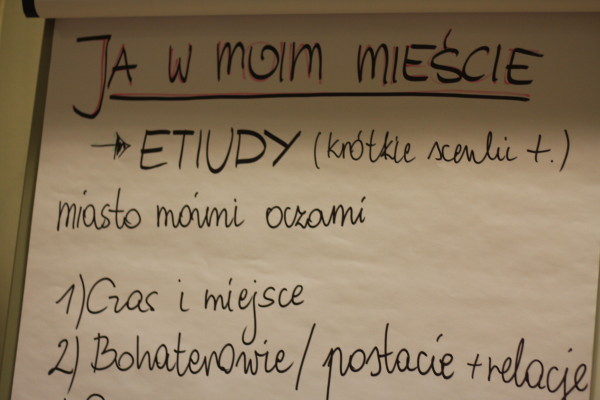 JA W MOIM MIEŚCIE
→ ETIUDY (krótkie scenki t.)
miasto moimi oczami
1) Czas i miejsce
2) Bohaterowie / postacie + relacje